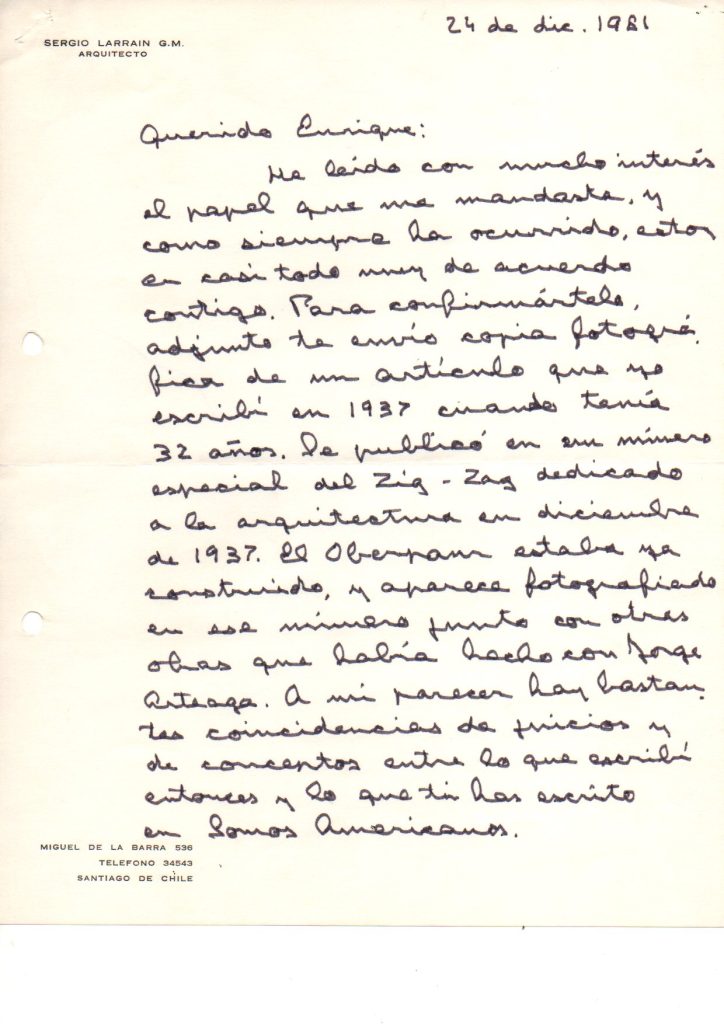 24 de dic. 1981
SERGIO LARRAIN G.M.
ARQUITECTO
Querido Enrique:
He leído con mucho interés
el papel que me mandaste, y
como siempre ha ocurrido, estoy
en casi todo muy de acuerdo
contigo. Para confirmártelo,
adjunto te envío copia fotográ-
fica de un artículo que yo
escribí en 1937 cuando tenía
32 años. Se publicó en un número
especial del Zig-Zag dedicado
a la arquitectura en diciembre
de 1937. El Oberpaur estaba ya
construido, y aparece fotografiado
en ese número junto con otras
obras que había hecho con Jorge
Arteaga. A mi parecer hay bastan-
tes coincidencias de juicios y
de conceptos entre lo que escribí
entonces y lo que tú has escrito
en Somos Americanos.
MIGUEL DE LA BARRA 536
TELEFONO 34543
SANTIAGO DE CHILE